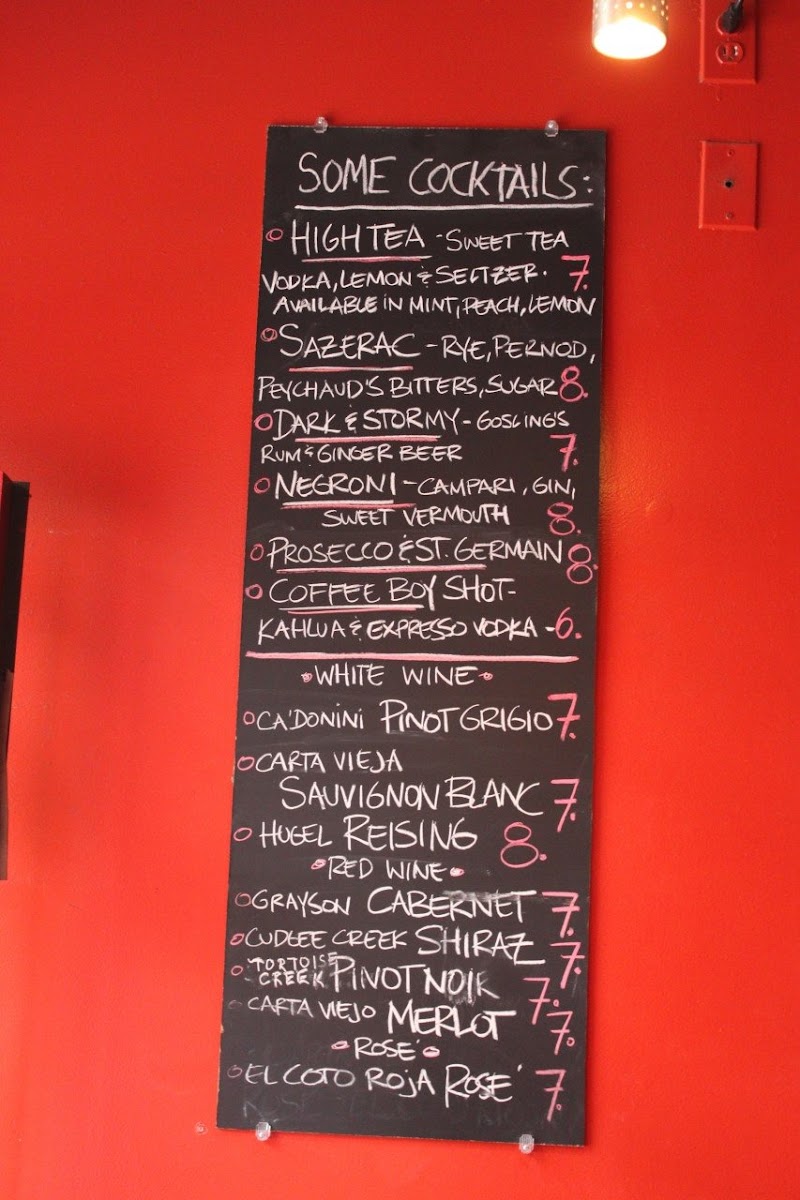 SOME COCKTAILS:
HIGH TEA - SWEET TEA
VODKA, LEMON & SELTZER. 7.
AVAILABLE IN MINT, PEACH, LEMON
SAZERAC - RYE, PERNOD,
PEYCHAUD'S BITTERS, SUGAR 8.
DARK & STORMY - GOSLING'S
RUM & GINGER BEER 7.
NEGRONI - CAMPARI, GIN,
SWEET VERMOUTH 8.
PROSECCO & ST. GERMAIN 8.
COFFEE BOY SHOT -
KAHLUA & EXPRESSO VODKA - 6.
• WHITE WINE •
CA'DONINI PINOT GRIGIO 7.
CARTA VIEJA
SAUVIGNON BLANC 7.
HUGEL REISING 8.
• RED WINE •
GRAYSON CABERNET 7.
CUDGEE CREEK SHIRAZ 7.
TORTOISE CREEK PINOT NOIR 7.
CARTA VIEJO MERLOT 7.
• ROSÉ •
EL COTO ROJA ROSÉ 7.